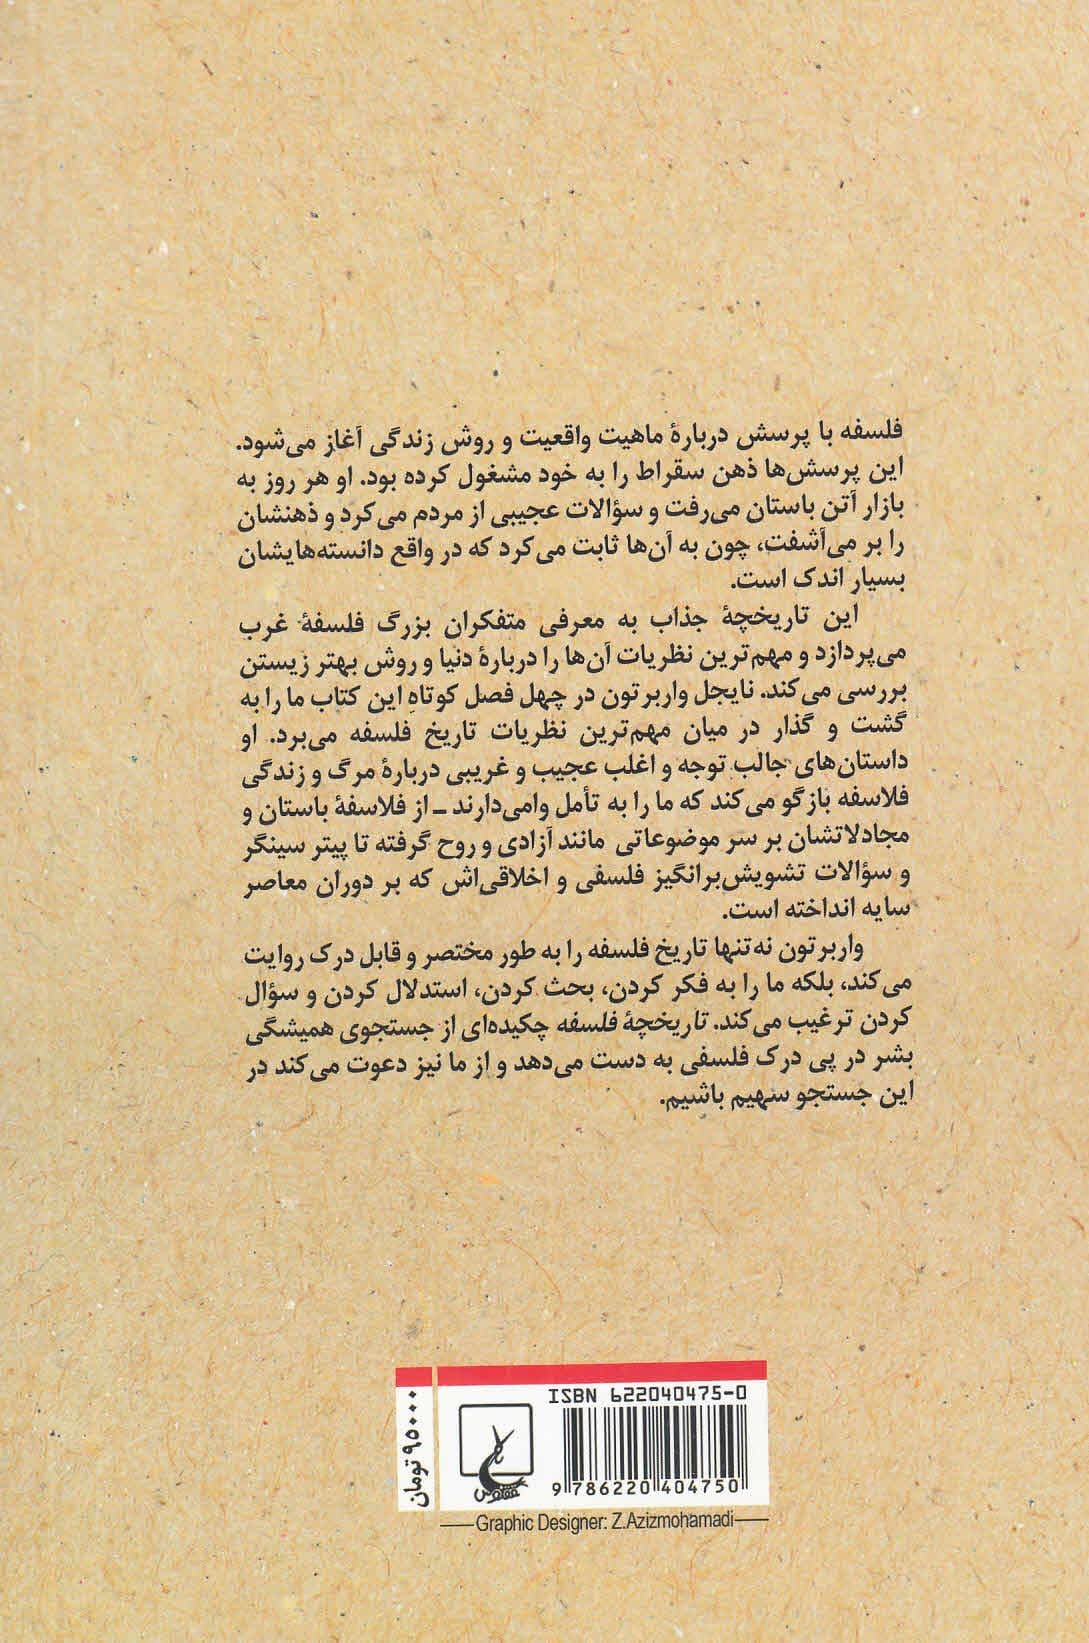 فلسفه با پرسش دربارهٔ ماهیت واقعیت و روش زندگی آغاز می‌شود.
این پرسش‌ها ذهن سقراط را به خود مشغول کرده بود. او هر روز به
بازار آتن باستان می‌رفت و سؤالات عجیبی از مردم می‌کرد و ذهنشان
را بر می‌آشفت، چون به آن‌ها ثابت می‌کرد که در واقع دانسته‌هایشان
بسیار اندک است.
این تاریخچهٔ جذاب به معرفی متفکران بزرگ فلسفهٔ غرب
می‌پردازد و مهم‌ترین نظریات آن‌ها را دربارهٔ دنیا و روش بهتر زیستن
بررسی می‌کند. نایجل واربرتون در چهل فصل کوتاهِ این کتاب ما را به
گشت و گذار در میان مهم‌ترین نظریات تاریخ فلسفه می‌برد. او
داستان‌های جالب توجه و اغلب عجیب و غریبی دربارهٔ مرگ و زندگی
فلاسفه بازگو می‌کند که ما را به تأمل وامی‌دارند ـ از فلاسفهٔ باستان و
مجادلاتشان بر سر موضوعاتی مانند آزادی و روح گرفته تا پیتر سینگر
و سؤالات تشویش‌برانگیز فلسفی و اخلاقی‌اش که بر دوران معاصر
سایه انداخته است.
واربرتون نه‌تنها تاریخ فلسفه را به طور مختصر و قابل درک روایت
می‌کند، بلکه ما را به فکر کردن، بحث کردن، استدلال کردن و سؤال
کردن ترغیب می‌کند. تاریخچهٔ فلسفه چکیده‌ای از جستجوی همیشگی
بشر در پی درک فلسفی به دست می‌دهد و از ما نیز دعوت می‌کند در
این جستجو سهیم باشیم.
۹۵۰۰۰ تومان
ISBN 622040475-0
ققنوس
9 786220 404750
Graphic Designer: Z.Azizmohamadi